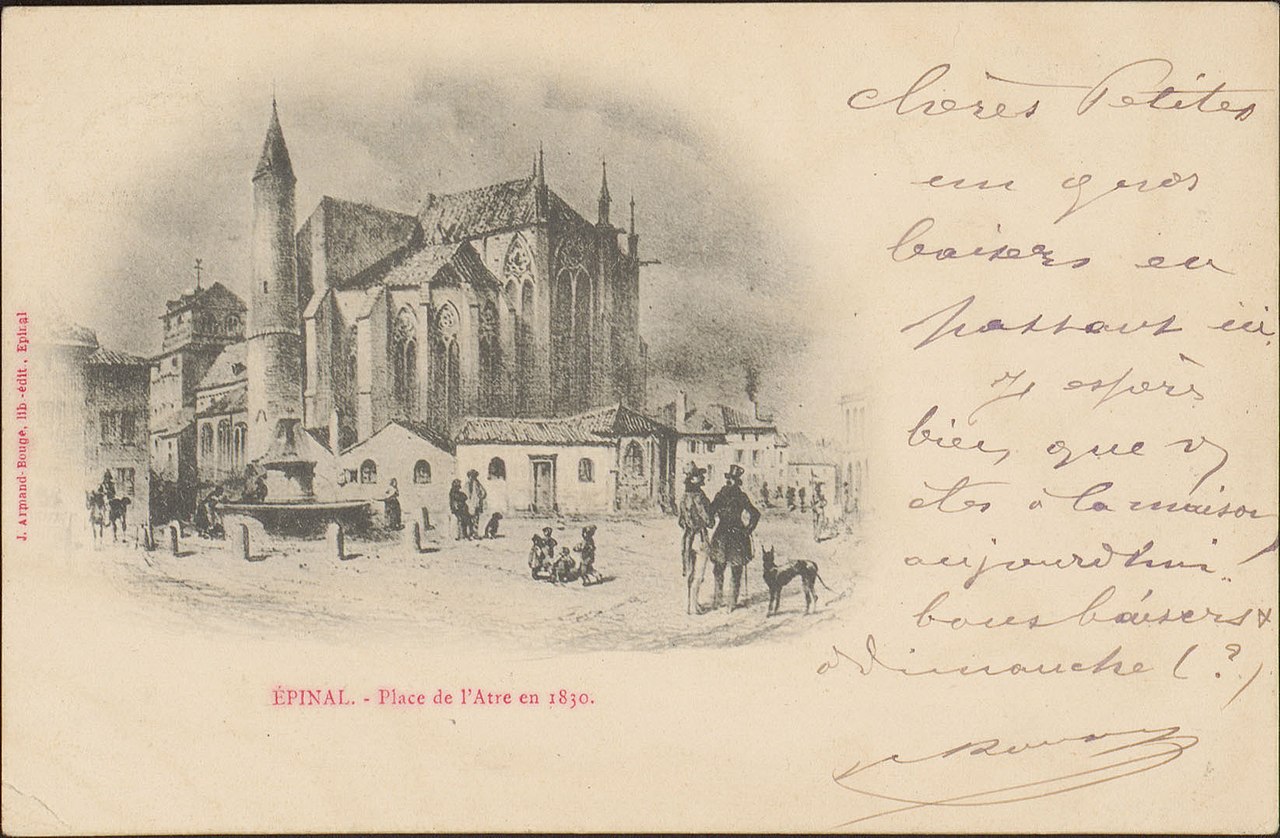 J. Armand-Bouge, lib.-édit., Epinal
ÉPINAL. - Place de l'Atre en 1830.
chères Petites
un gros
baisers en
passant ici,
J espère
bien que v
êtes à la maison
aujourd'hui.
bons baisers &
à dimanche (?)